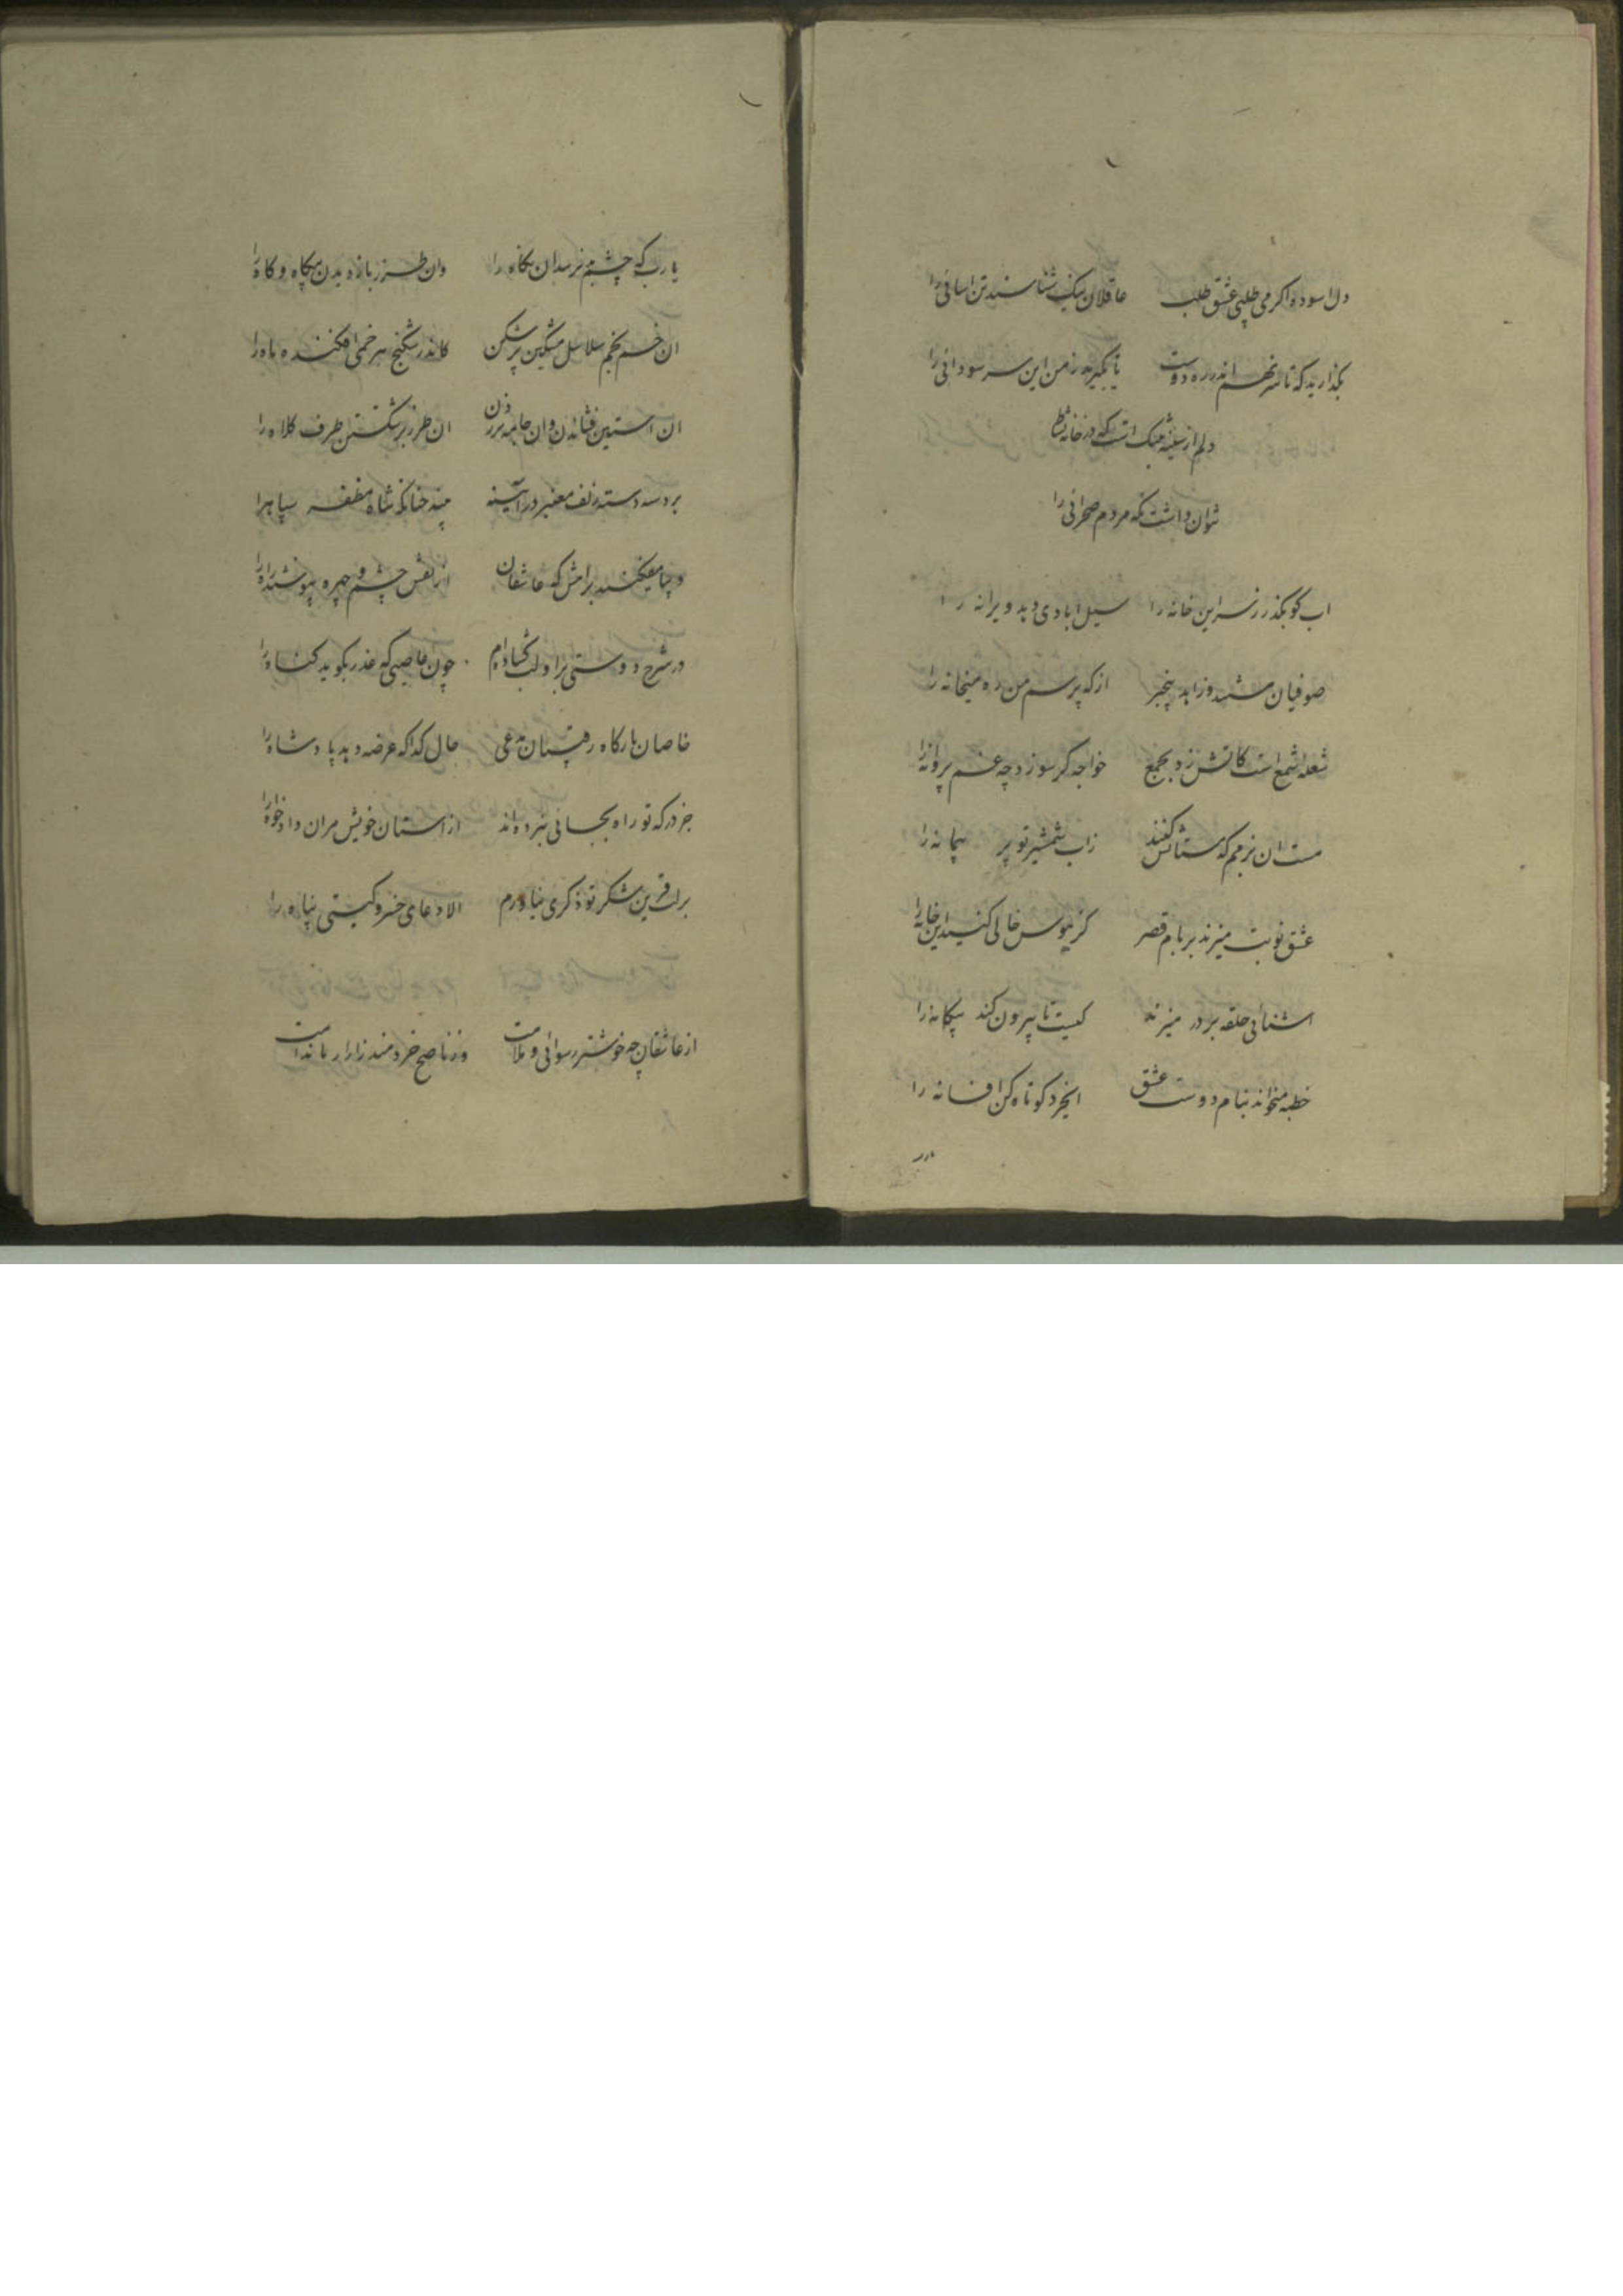 دل اسوده اکر می طلبی عشق طلب عاقلان نیک شناسند تن اسانی را
بکذارید که تا سر نهم اندر ره دوست تا بکیرید ز من این سر سودائی را
دلم از سینه تنک است که در خانه
نتوان داشت نکه مردم صحرائی را
اب کو بکذر ز سر این خانه را سیل ابادی دهد ویرانه را
صوفیان مستند و زاهد بیخبر از که پرسم من ره میخانه را
شعله شمع است کاتش زد بجمع خواجه کر سوزد چه غم پروانه را
مست ان بزمم که مستانش کنند زاب شمشیر تو پر پیمانه را
عشق نوبت میزند بر بام قصر کز هوس خالی کنید این خانه را
اشنائی حلقه بر در میزند کیست تا بیرون کند بیکانه را
خطبه میخواند بنام دوست عشق ایخرد کوتاه کن افسانه را
یا رب که چشم بد نرسد ان نکاه را وان طرز باز دیدن بیکاه و کاه را
ان خم بخم سلاسل مشکین پرشکن کاندر شکنج هر خمی افکنده ماه را
ان استین فشاندن وان جامه بر زدن ان طرز بر شکستن طرف کلاه را
بر دسته دسته زلف معنبر در آینه بیند چنانکه شاه مظفر سپاهرا
دیبا میفکنید براهش که عاشقان از نقش چشم و چهره بپوشند راه را
در شرح دوستی برا و لب کشاده‌ام چون عاصیی که عذر بکوید کناه را
خاصان بارکاه رقیبان مدعی حال کدا که عرضه دهد پادشاه را
جز درکه تو راه بجائی نبرده‌اند از استان خویش مران دادخواه را
بر لب قرین شکر تو ذکری نیاورم الا دعای خسرو کیتی پناه را
از عاشقان چه خوشتر رسوائی و ملامت وز ناصح خردمند زاراریا ندامت